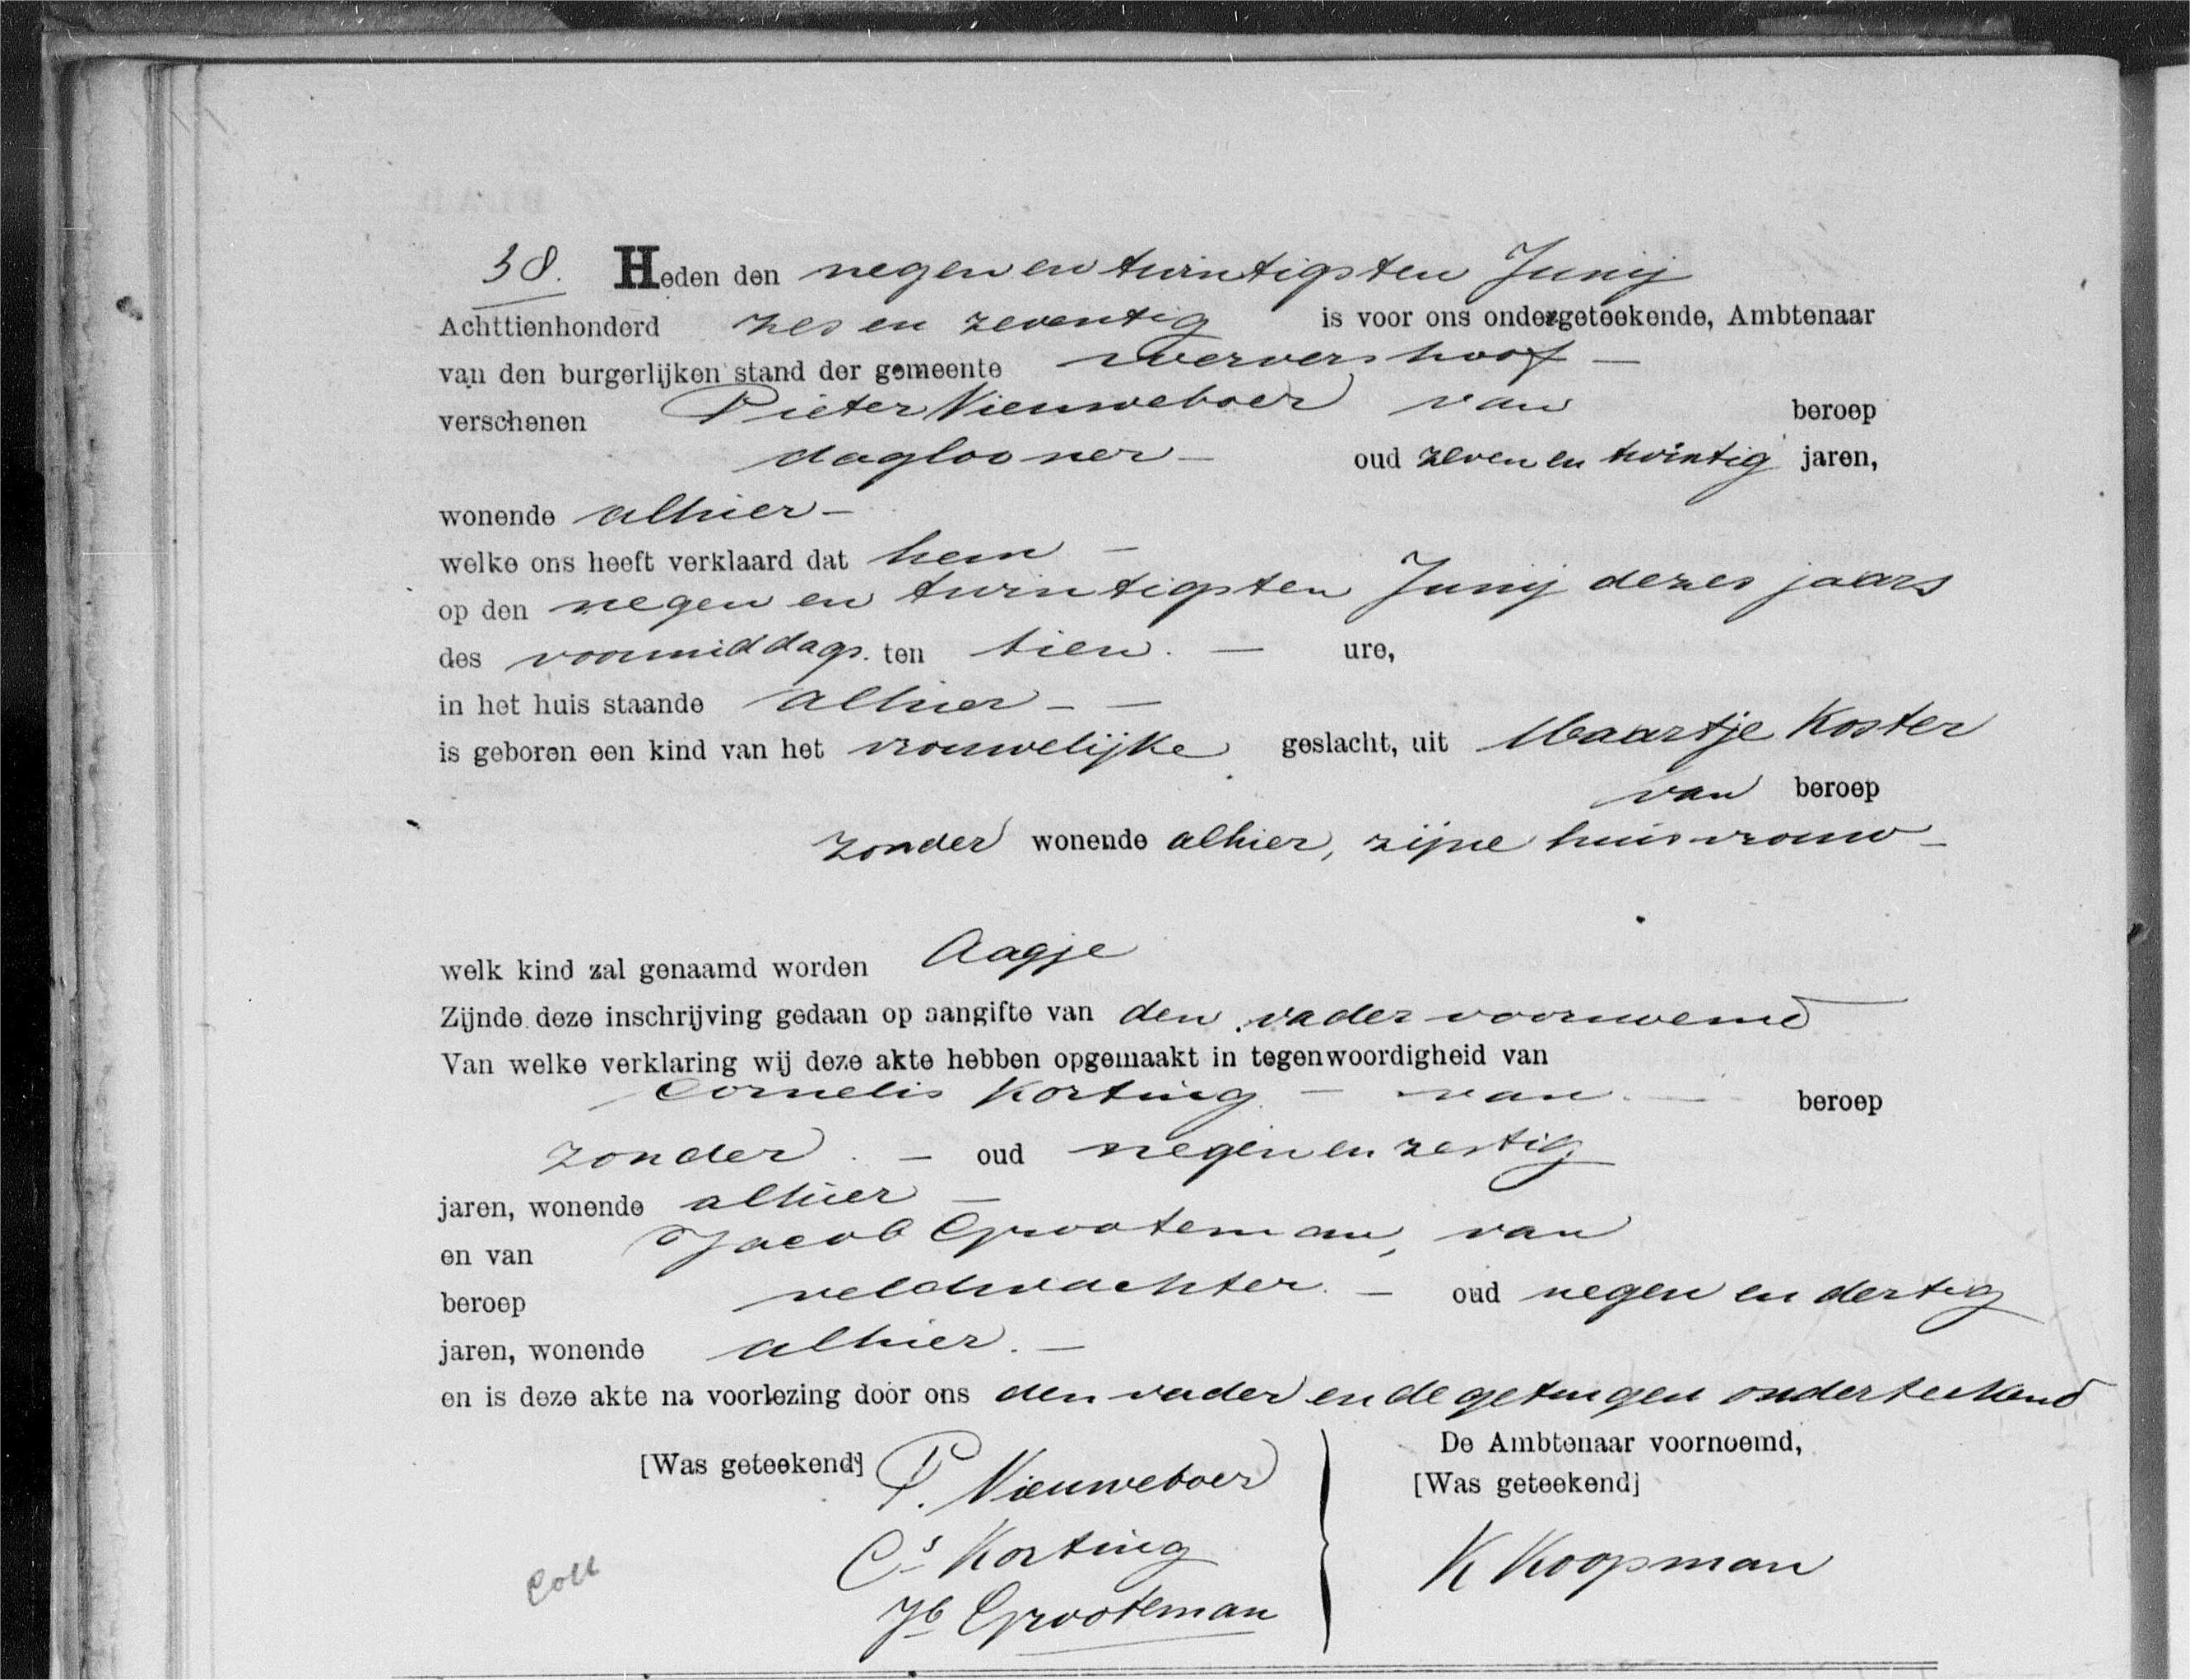 38. Heden den negen en twintigsten Junij
Achttienhonderd zes en zeventig is voor ons ondergeteekende, Ambtenaar
van den burgerlijken stand der gemeente Wervershoof —
verschenen Pieter Nieuweboer van beroep
daglooner — oud zeven en twintig jaren,
wonende alhier —
welke ons heeft verklaard dat hem —
op den negen en twintigsten Junij dezes jaars
des voormiddags. ten tien. — ure,
in het huis staande alhier — —
is geboren een kind van het vrouwelijke geslacht, uit Maartje Koster
van beroep
zonder wonende alhier, zijne huisvrouw —
welk kind zal genaamd worden Aagje
Zijnde deze inschrijving gedaan op aangifte van den vader voornoemd
Van welke verklaring wij deze akte hebben opgemaakt in tegenwoordigheid van
Cornelis Korting — van — beroep
zonder. — oud negen en zestig
jaren, wonende alhier —
en van Jacob Grooteman, van
beroep veldwachter. — oud negen en dertig
jaren, wonende alhier. —
en is deze akte na voorlezing door ons den vader en de getuigen onderteekend
[Was geteekend] P. Nieuweboer
Cs Korting
Jb Grooteman
De Ambtenaar voornoemd,
[Was geteekend]
K Koopman
Coll